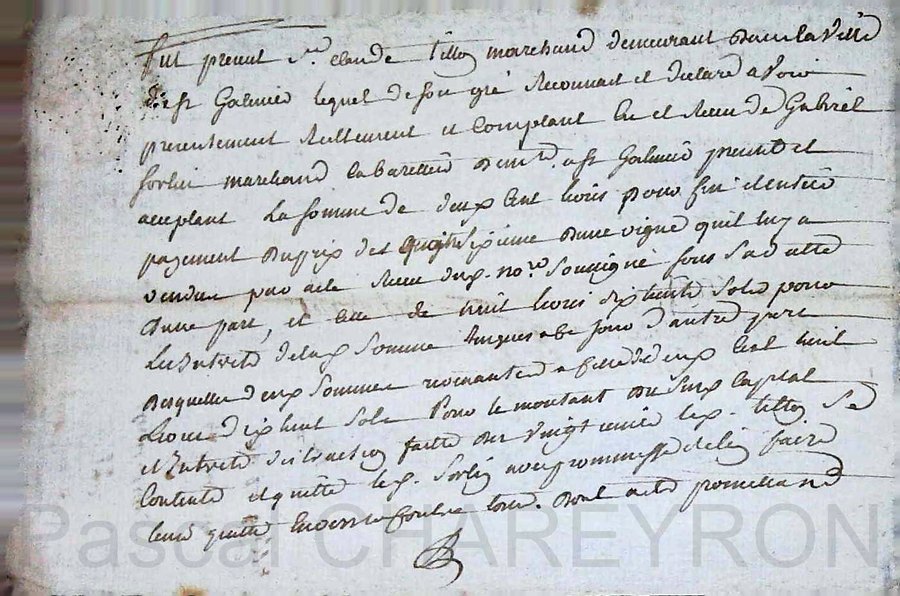 Fut present Sr. claude tillon marchand demeurant dans la ville
de st Galmier lequel de son gré reconnait et declare avoir
presentement reellement et comptant eu et receu de Gabriel
sorlin marchand cabaretier dem.t a st Galmier present et
acceptant La somme de deux cent livres pour fin et entier
payement du prix des d'une vigne quil luy a
vendue par acte receu du no.re soussigné sous sa datte
d'une part, et celle de huit livres dix huit sols pour
Les Interets de la d. somme Jusques a ce jour d'autre part
desquelles deux sommes revenantes a celle de deux cent huit
livres dix huit sols Pour le montant du susd. Capital
et Interets distraction faitte du vingtieme led. tillon se
Contente et quitte led. Sorlin avec promesse de l'en faire
tenir quitte envers et contre tous. dont acte promettant
Pascal CHAREYRON